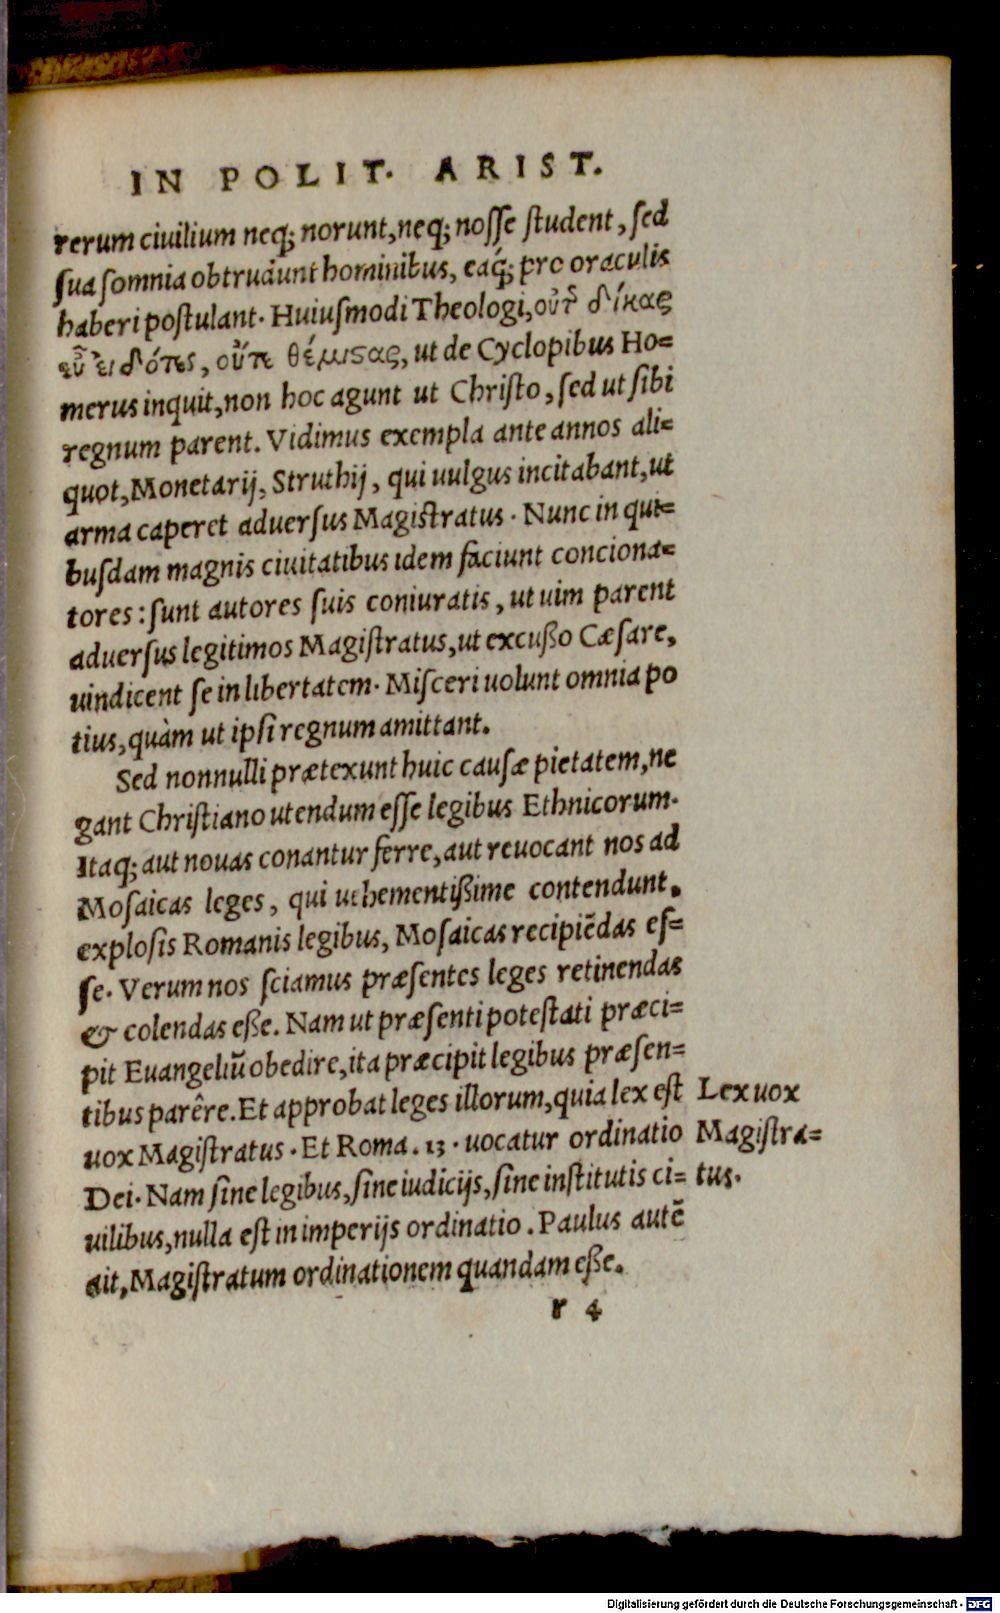 IN POLIT. ARIST.
rerum ciuilium neq; norunt, neq; noſſe ſtudent, ſed
ſua ſomnia obtrudunt hominibus, eaq́; pro oraculis
haberi poſtulant. Huiuſmodi Theologi, οὔτ᾽ δίκας
εὖ εἰδότες, οὔτε θέμιϛας, ut de Cyclopibus Ho=
merus inquit, non hoc agunt ut Chriſto, ſed ut ſibi
regnum parent. Vidimus exempla ante annos ali=
quot, Monetarij, Struthij, qui uulgus incitabant, ut
arma caperet aduerſus Magiſtratus. Nunc in qui=
buſdam magnis ciuitatibus idem faciunt conciona=
tores: ſunt autores ſuis coniuratis, ut uim parent
aduerſus legitimos Magiſtratus, ut excußo Cæſare,
uindicent ſe in libertatem. Miſceri uolunt omnia po
tius, quàm ut ipſi regnum amittant.
Sed nonnulli prætexunt huic cauſæ pietatem, ne
gant Chriſtiano utendum eſſe legibus Ethnicorum.
Itaq; aut nouas conantur ferre, aut reuocant nos ad
Moſaicas leges, qui uehementißime contendunt.
exploſis Romanis legibus, Moſaicas recipiẽdas eſ=
ſe. Verum nos ſciamus præſentes leges retinendas
& colendas eße. Nam ut præſenti poteſtati præci=
pit Euangeliũ obedire, ita præcipit legibus præſen=
tibus parêre. Et approbat leges illorum, quia lex eſt
uox Magiſtratus. Et Roma. 13. uocatur ordinatio
Dei. Nam ſine legibus, ſine iudicijs, ſine inſtitutis ci=
uilibus, nulla eſt in imperijs ordinatio. Paulus autẽ
ait, Magiſtratum ordinationem quandam eße.
Lex uox
Magiſtra=
tus.
r 4
Digitalisierung gefördert durch die Deutsche Forschungsgemeinschaft - DFG